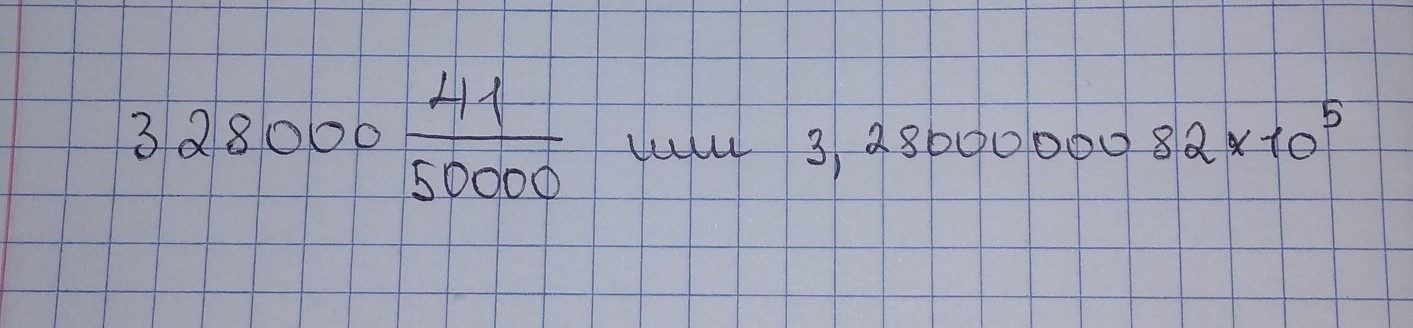 328000 41/50000 или 3,2800000082×10⁵